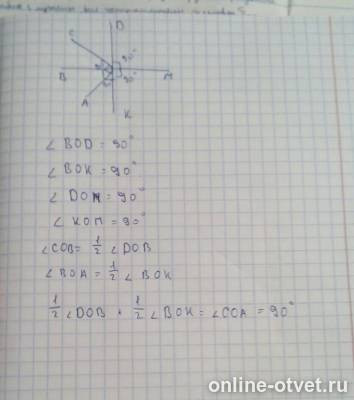 D
C
90°
B
M
90°
A
K
∠ BOD = 90°
∠ BOK = 90°
∠ DOM = 90°
∠ KOM = 90°
∠COB = 1/2 ∠DOB
∠BOA = 1/2 ∠ BOK
1/2 ∠DOB + 1/2 ∠BOK = ∠COA = 90°
online-otvet.ru